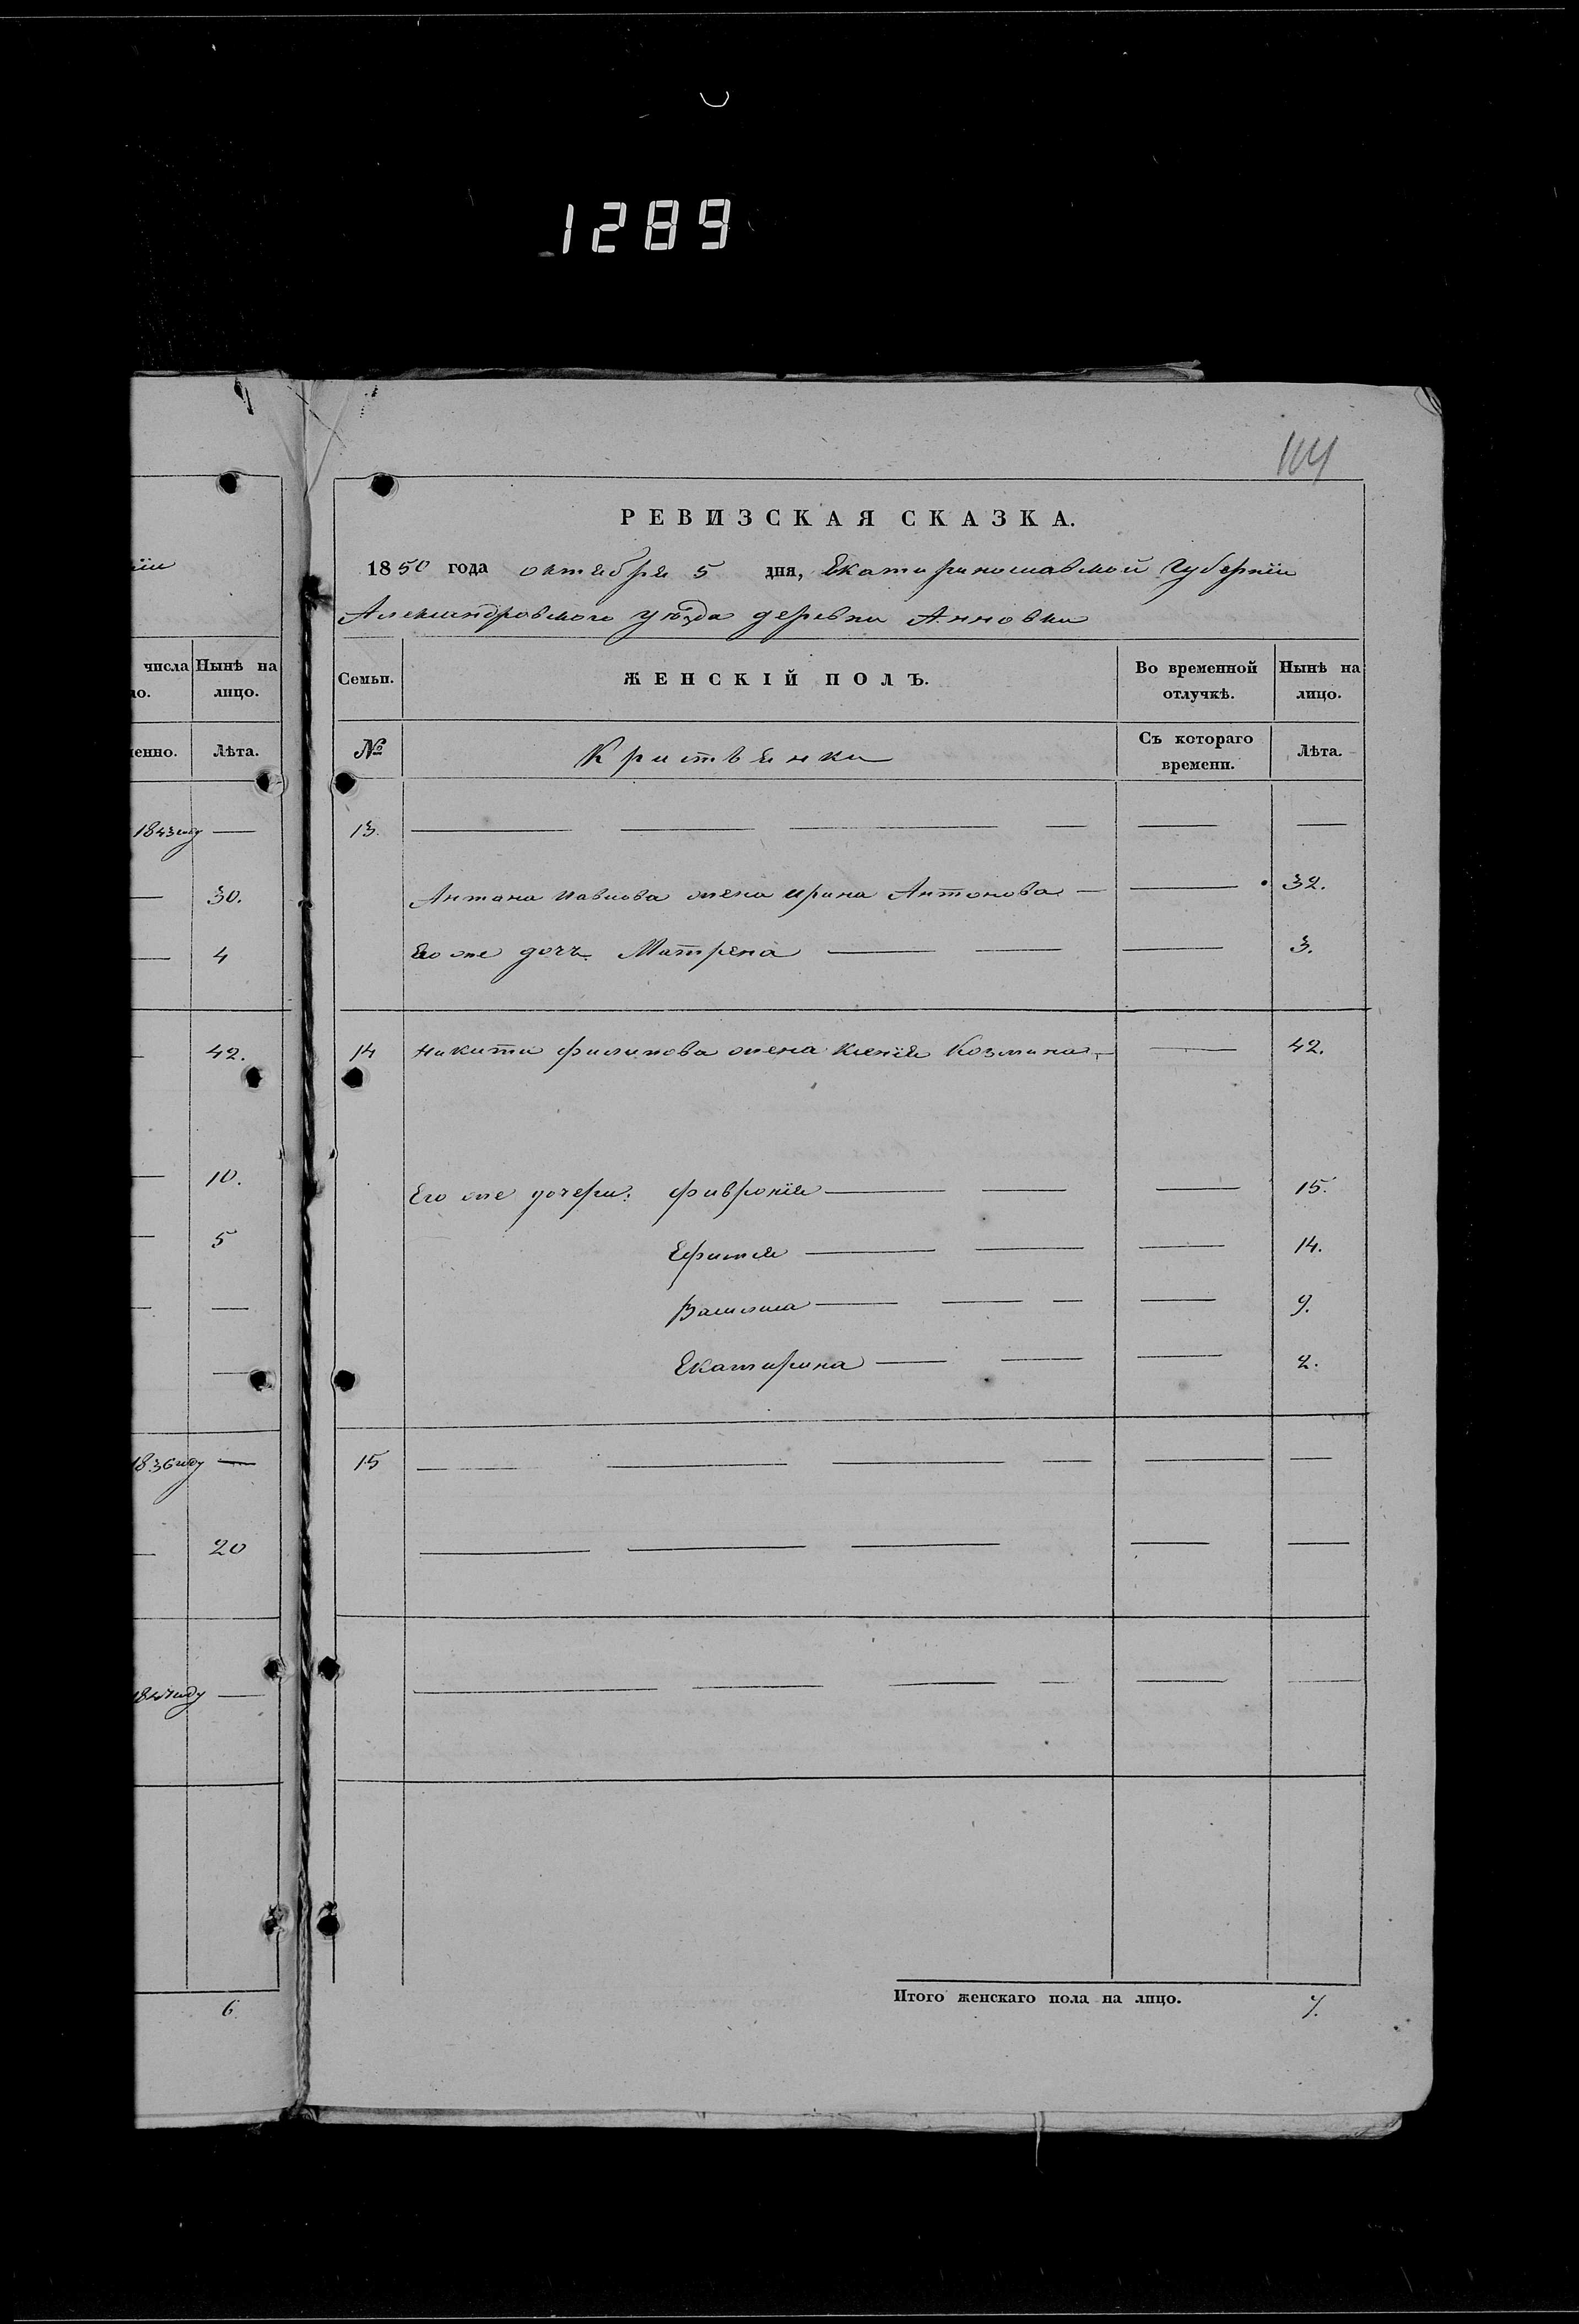 1289
104
РЕВИЗСКАЯ СКАЗКА.
1850 года октября 5 дня, Екатеринославской Губерніи
Александровского уѣзда деревни Анновки
ніи
числа Нынѣ на лицо.
но.
менно. Лѣта.
1843 году —
— 30.
— 4
— 42.
— 10.
— 5
— —
—
1836 году —
— 20
1847 году —
6.
Семьи. ЖЕНСКІЙ ПОЛЪ. Во временной отлучкѣ. Нынѣ на лицо.
№ Кристьянки Съ котораго времени. Лѣта.
13. — — — — — —
Антона Павлова жена Ирина Антонова — — 32.
Его же дочь Матрена — — — 3.
14 Никити Филипова жена Ксенія Козмина — — 42.
Его же дочери: Фивронія — — — 15.
Ефимія — — — 14.
Васи­лиса — — — — 9.
Екатирина — — — 2.
15 — — — — — —
— — — — —
— — — — — —
Итого женскаго пола на лицо. 7.